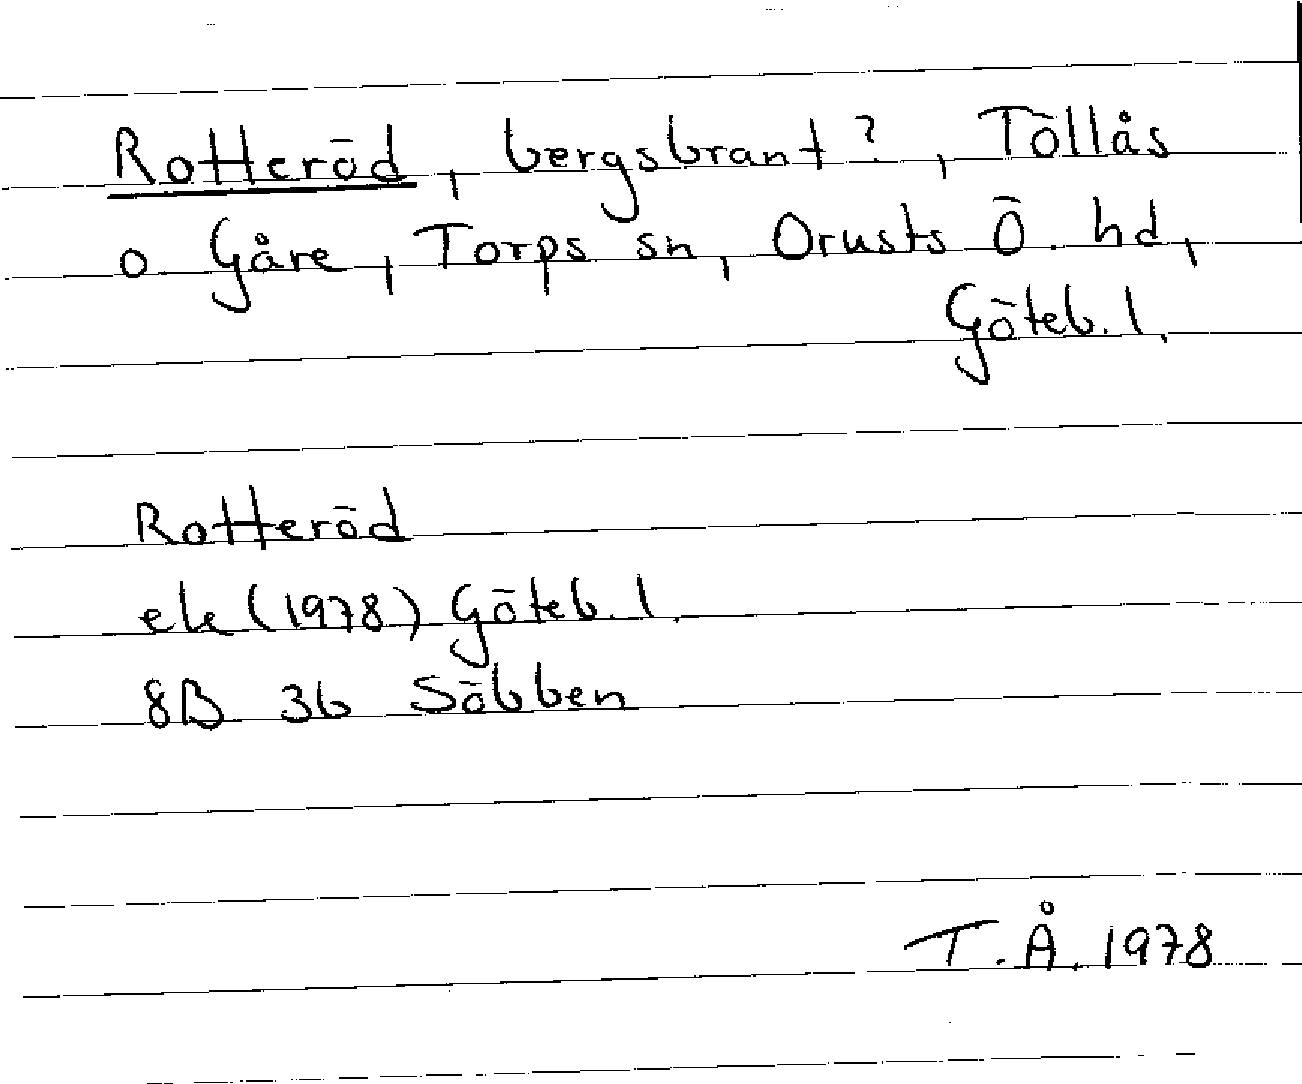 Rotteröd, bergsbrant?, Töllås
o Gåre, Torps sn, Orusts Ö. hd,
Göteb. l.
Rotteröd
ek (1978) Göteb. l.
8B 3b Söbben
T. Å. 1978